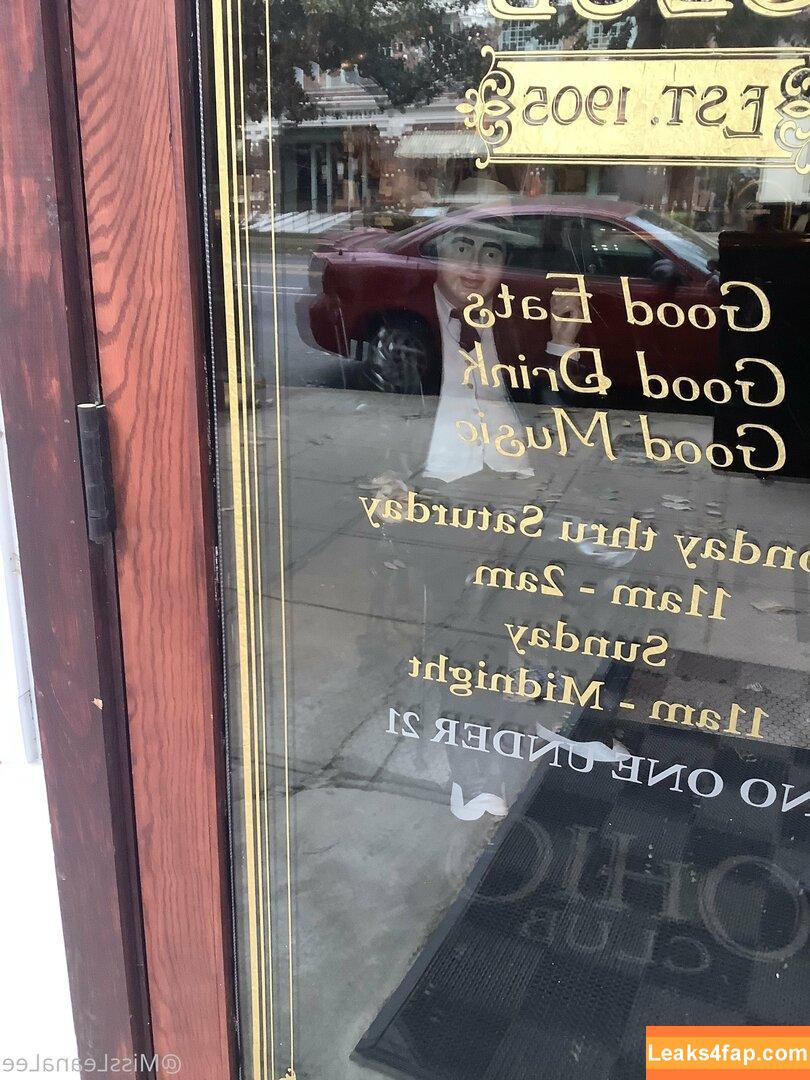 EST. 1905
Good Eats
Good Drink
Good Music
onday thru Saturday
11am - 2am
Sunday
11am - Midnight
NO ONE UNDER 21
OHIO
CLUB
@MissLeanaLee
Leaks4fap.com